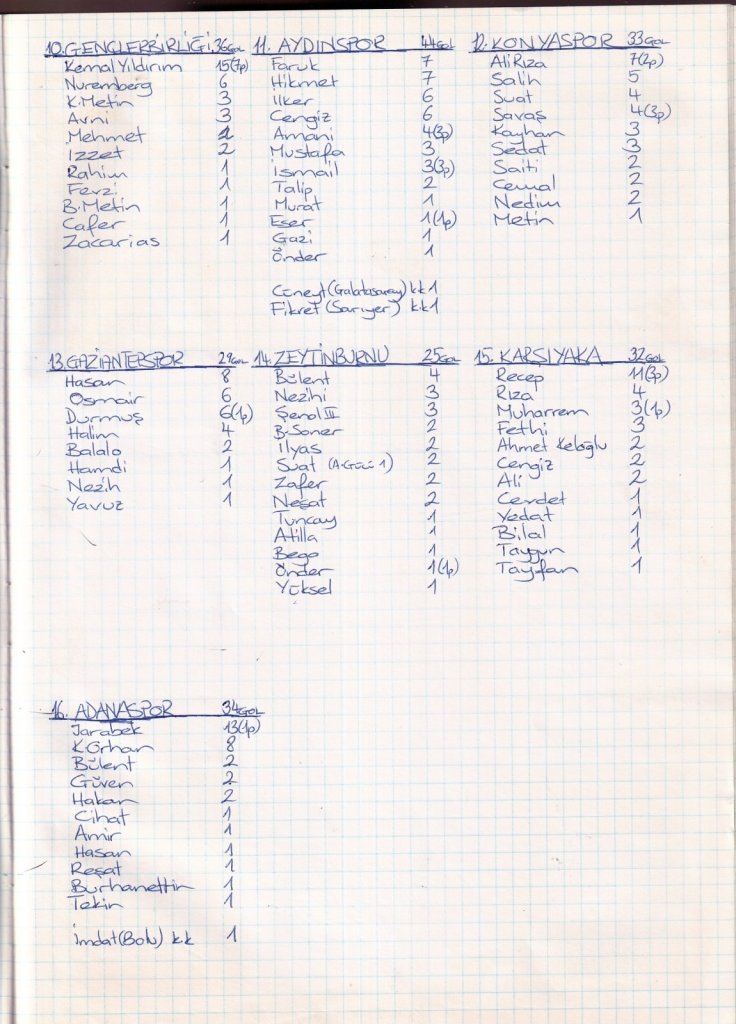 10. GENÇLERBİRLİĞİ 36 GOL
Kemal Yıldırım 15(7p)
Nuremberg 6
K.Metin 3
Avni 3
Mehmet 2
İzzet 2
Rahim 1
Fevzi 1
B.Metin 1
Cafer 1
Zacarias 1
11. AYDINSPOR 44 GOL
Faruk 7
Hikmet 7
İlker 6
Cengiz 6
Amani 4(3p)
Mustafa 3
İsmail 3(3p)
Talip 2
Murat 1
Eser 1(1p)
Gazi 1
Önder 1
Cüneyt (Galatasaray) kk 1
Fikret (Sarıyer) kk 1
12. KONYASPOR 33 GOL
Ali Rıza 7(2p)
Salih 5
Suat 4
Savaş 4(3p)
Kayhan 3
Sedat 3
Saiti 2
Cemal 2
Nedim 2
Metin 1
13. GAZİANTEPSPOR 29 GOL
Hasan 8
Osmair 6
Durmuş 6(1p)
Halim 4
Balalo 2
Hamdi 1
Nezih 1
Yavuz 1
14. ZEYTİNBURNU 25 GOL
Bülent 4
Nezihi 3
Şenol III 3
B.Soner 2
İlyas 2
Suat (A.Gücü 1) 2
Zafer 2
Neşat 2
Tuncay 1
Atilla 1
Bego 1
Önder 1(1p)
Yüksel 1
15. KARŞIYAKA 32 GOL
Recep 11(3p)
Rıza 4
Muharrem 3(1p)
Fethi 3
Ahmet Keloğlu 2
Cengiz 2
Ali 2
Cevdet 1
Vedat 1
Bilal 1
Taygun 1
Tayfan 1
16. ADANASPOR 34 GOL
Jarabek 13(1p)
K.Orhan 8
Bülent 2
Güven 2
Hakan 2
Cihat 1
Amir 1
Hasan 1
Reşat 1
Burhanettin 1
Tekin 1
İmdat (Bolu) k.k 1